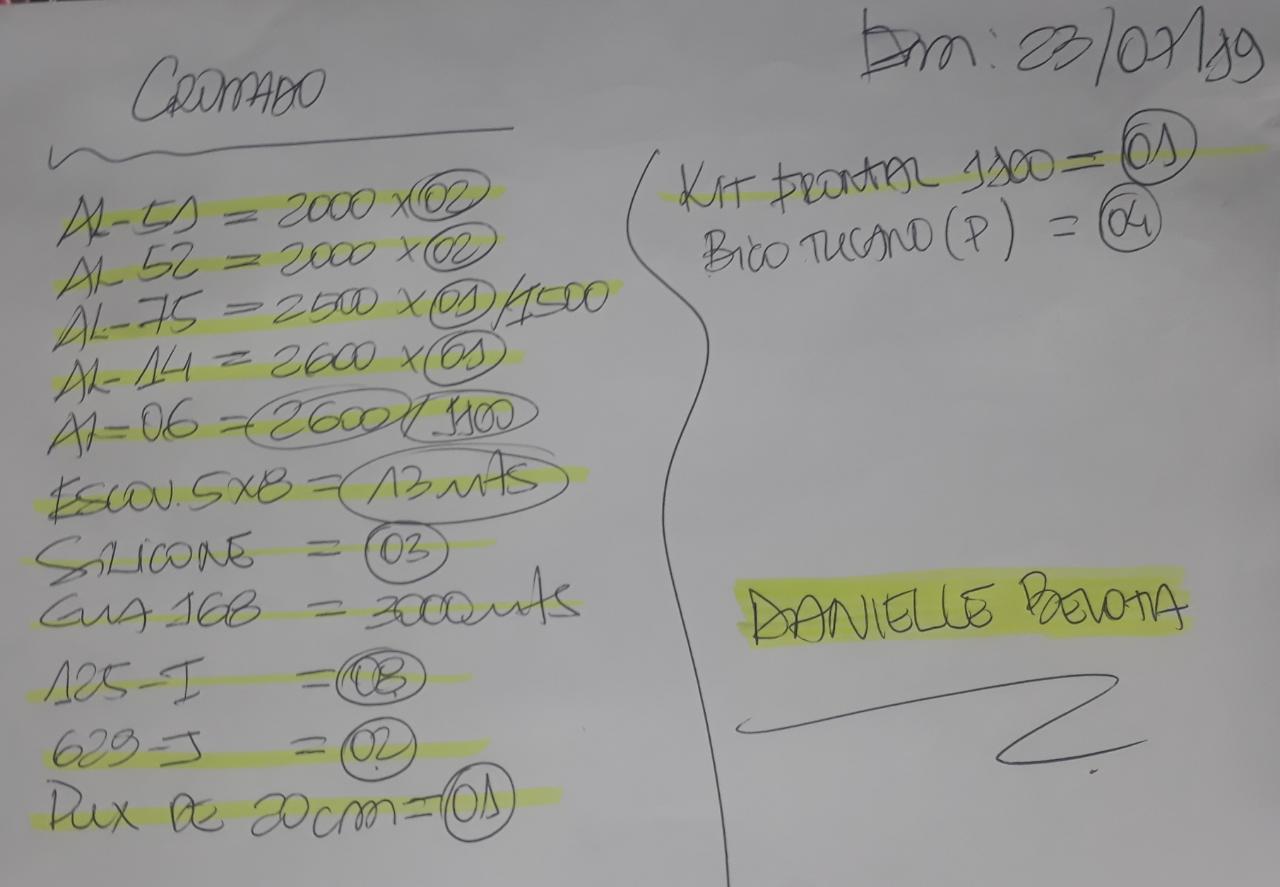 CROMADO
AL-51 = 2000 x 02
AL 52 = 2000 x 02
AL-75 = 2500 x 01/1500
AL-14 = 2600 x 01
AL-06 = 2600/1100
ESCOV. 5x8 = 13 mts
SILICONE = 03
GUA 168 = 3000 mts
125-I = 08
629-J = 02
PUX DE 20cm = 01
Em: 23/07/19
KIT FRONTAL 1100 = 01
BICO TUCANO (P) = 04
DANIELLE BELOTA